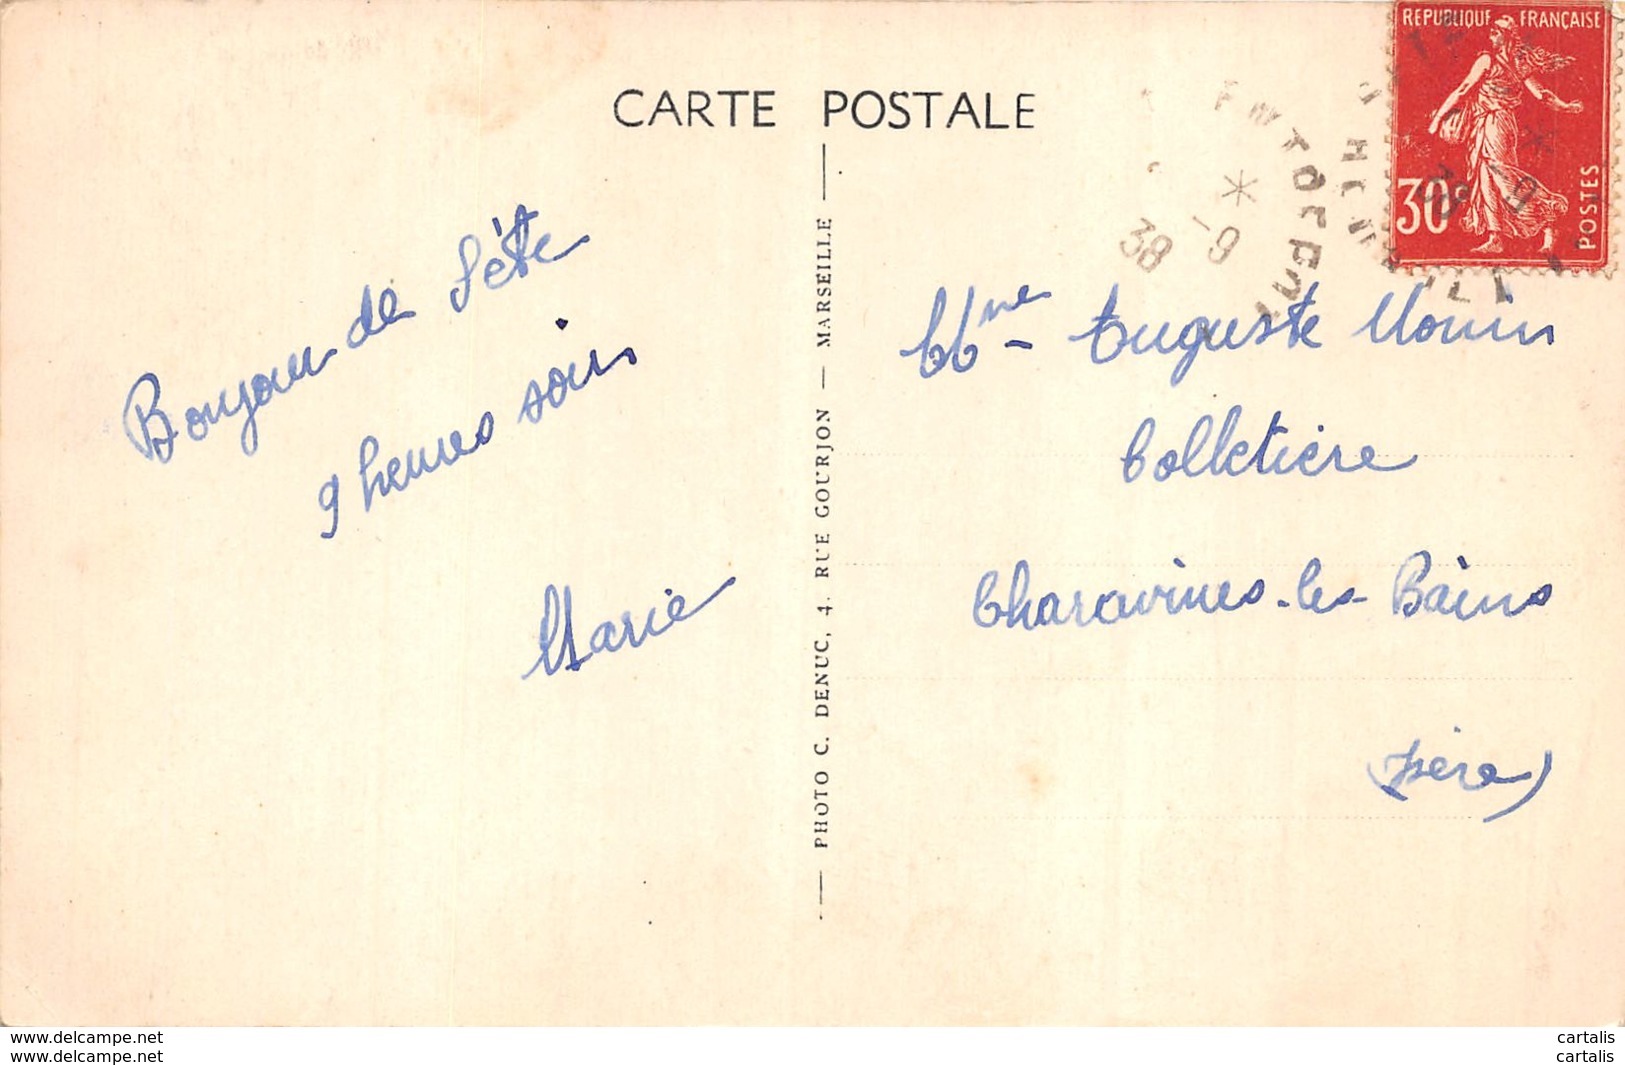 CARTE POSTALE
REPUBLIQUE FRANÇAISE
30c
POSTES
38
-9
Bonjour de Sète
9 heures soir
Marie
Mme Auguste Monin
Colletière
Charavines-les-Bains
(Isère)
PHOTO C. DENUC, 4, RUE GOURJON — MARSEILLE
www.delcampe.net
www.delcampe.net
cartalis
cartalis